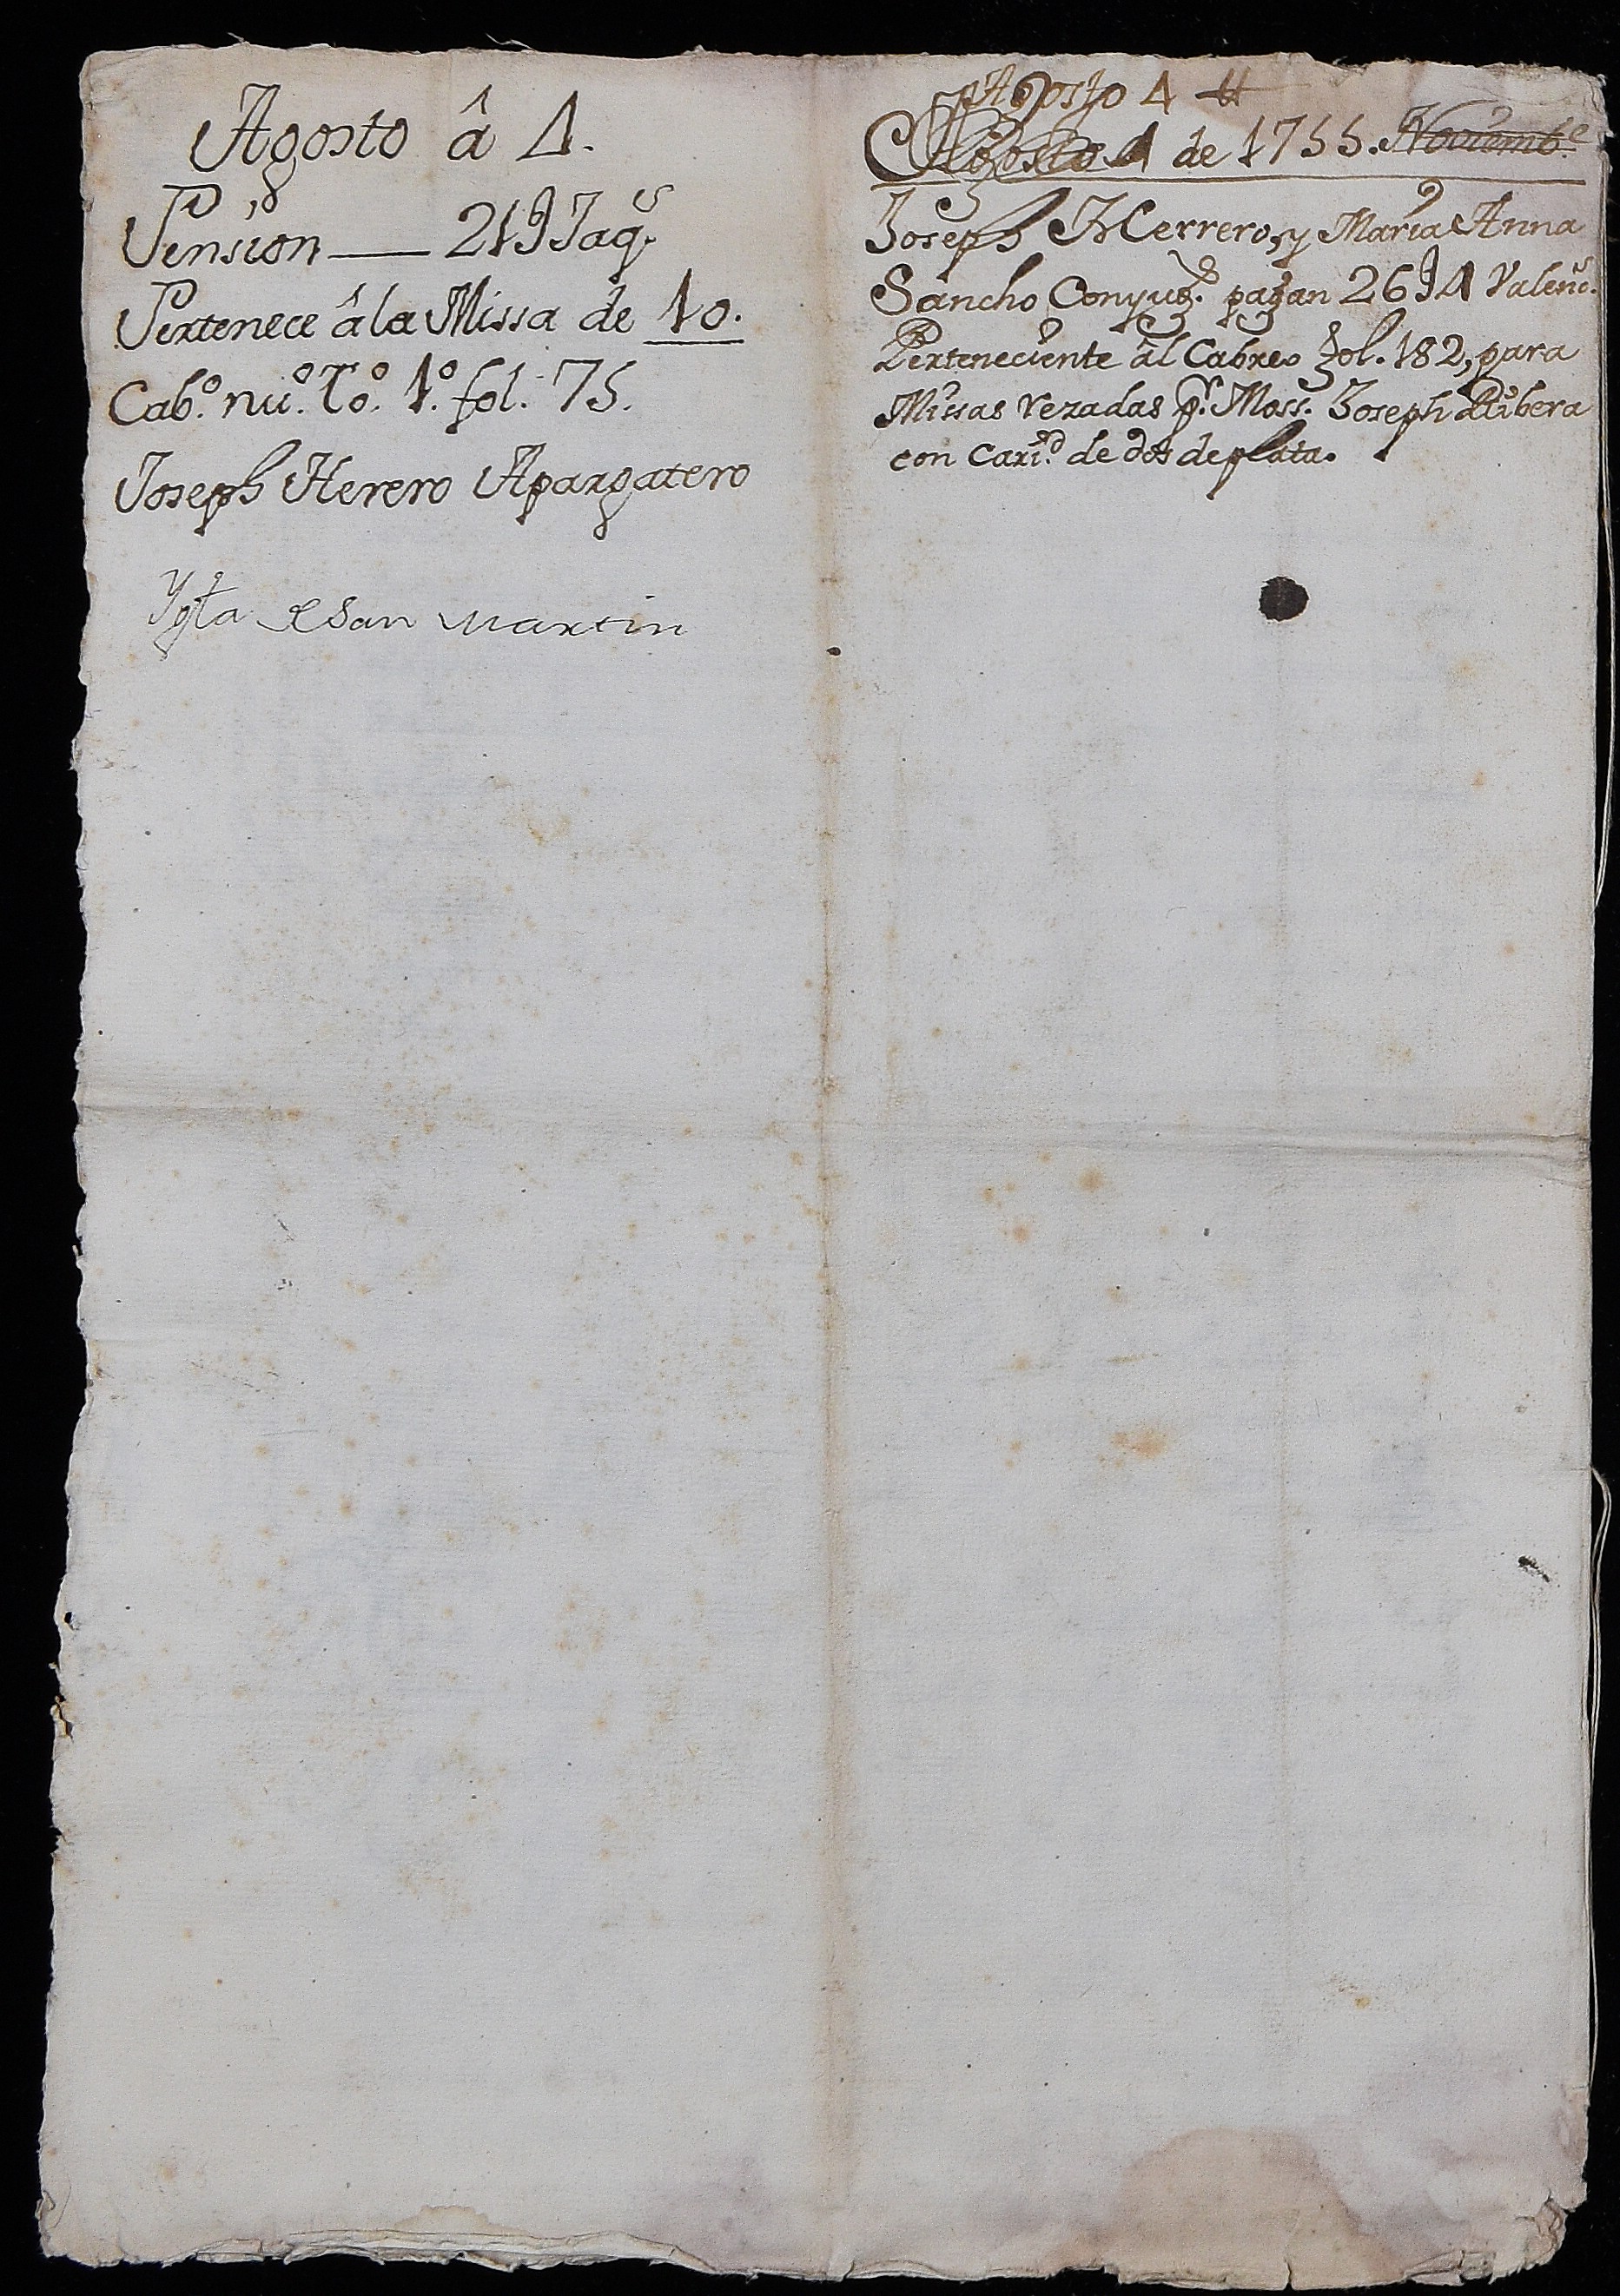 Agosto â 4.
Pension — 21 9 Jaq.s
Pertenece â la Missa de 10.
Cab.o nu.o To. 1.o fol. 75.
Joseph Herero Apargatero
Ygta San Martin
Agosto 4
4 de 1755. Noviemb.e
Joseph Herrero, y Maria Anna
Sancho Conyug.s pagan 26 9 4 Valenc.s
Perteneciente âl Cabreo fol. 182, para
Missas rezadas p.r Moss. Joseph Ribera
con Cari.d de dos de plata.